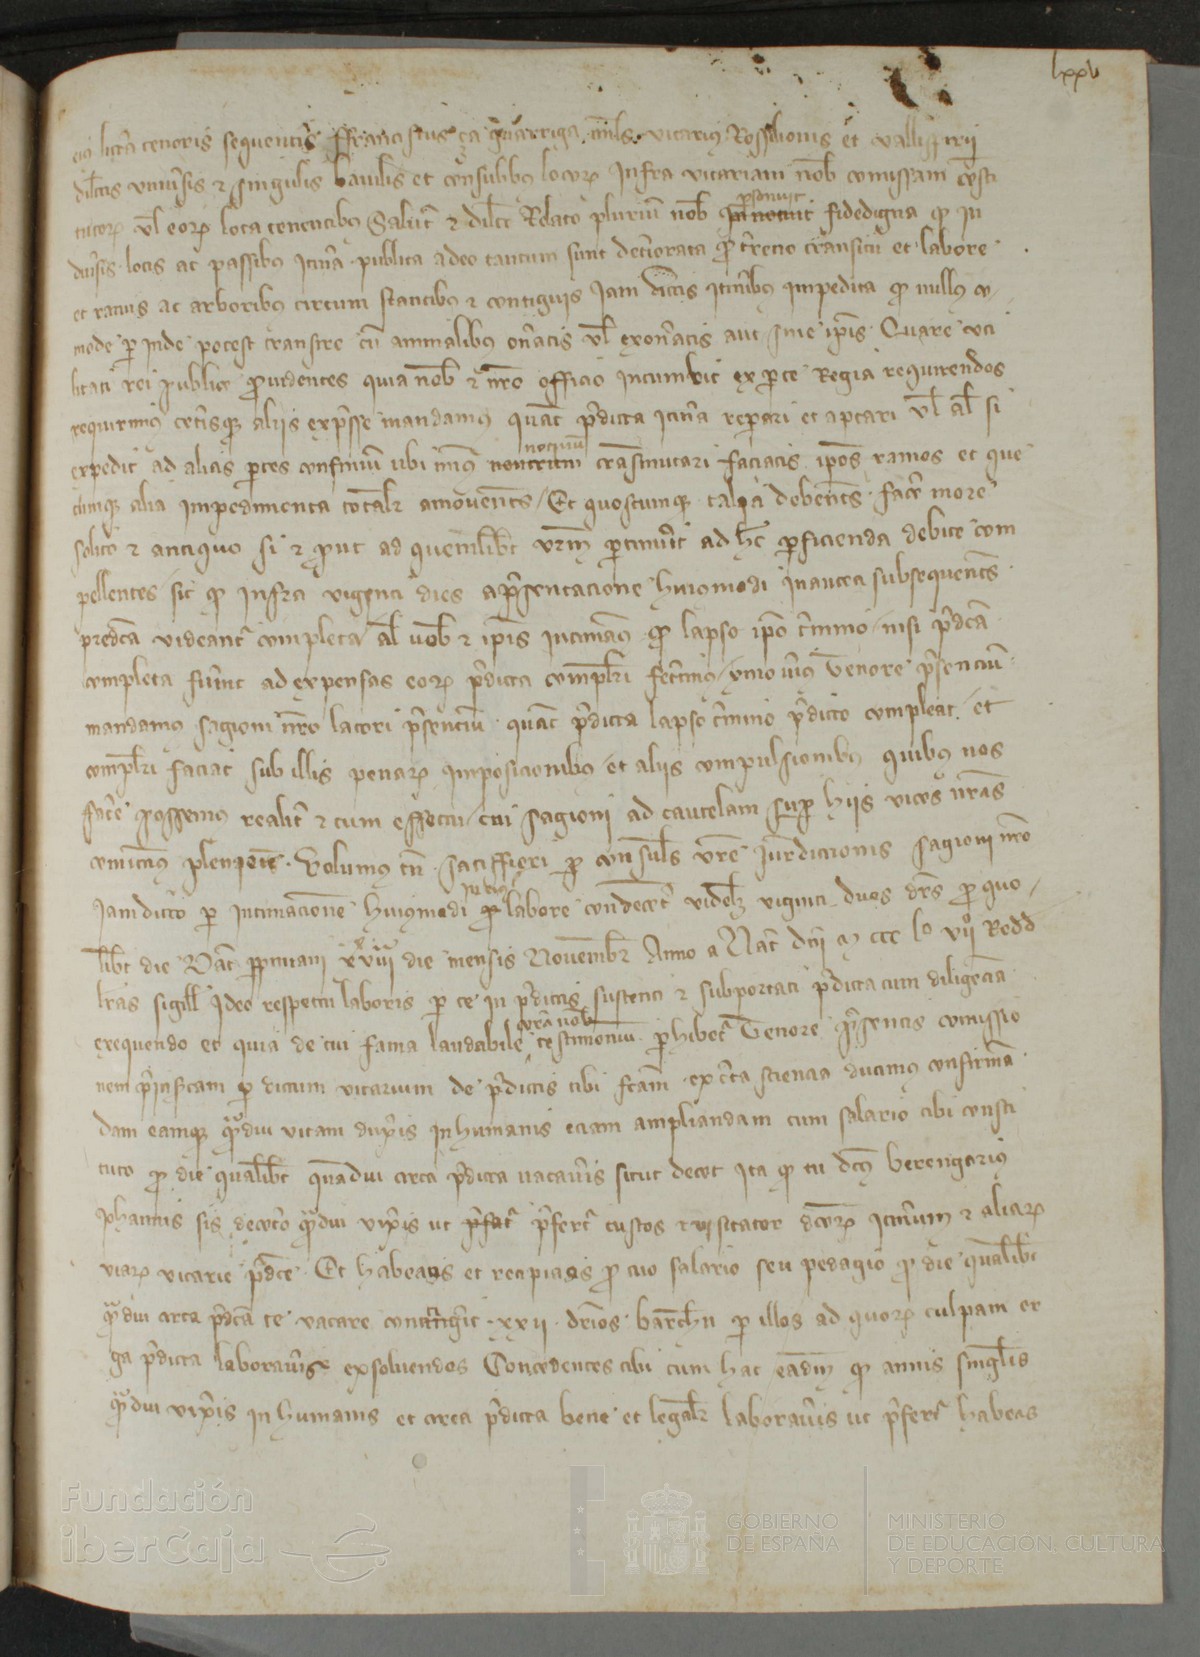 lxxv
litera tenoris sequentis ffranciscus ça guarriga mils vicarius Rossilionis et vallispirii
dilectis universis & singulis baiulis et consulibus locorum infra vicariam nobis comissam consti
tutorum vel eorum loca tenentibus Salutem & dilectionem Relato plurium nobis personuit fidedigna quod in
diversis locis ac passibus itinera publica adeo tantum sunt deteriorata transitu et labore
et ramis ac arboribus circum stantibus & contiguis Iam dictis itineribus impedita quod nullus co
mode per inde potest transire cum animalibus oneratis vel exoneratis aut sine ipsis Quare uti
litati rei publice providentes quia nobis & nostro officio incumbit ex parte Regia requirendos
requirimus ceterisque aliis expresse mandamus quatenus predicta itinera reparari et aptari vel alias si
expedit ad alias partes confinium ubi minus nocivum transmutari faciatis ipsos ramos et que
cumque alia impedimenta totaliter amoventes Et quoscumque talia debentes facere more
solito & antiquo si & prout ad quemlibet vestrum pertinuerit ad hec perficienda debite com
pellentes sic quod infra viginti dies a presentacione huiusmodi inantea subsequentes
predicta videantur completa alias vobis & ipsis intimamus quod lapso ipso termino nisi predicta
completa fuerint ad expensas eorum predicta compleri fecerimus ymo verius Tenore presencium
mandamus sagioni nostro latori presencium quatenus predicta lapso termino predicto compleat et
compleri faciat sub illis penarum imposicionibus et aliis compulsionibus quibus nos
facere possemus realiter & cum effectu cui sagioni ad cautelam super hiis vices nostras
comitimus plenarie Volumus tamen satisffieri per consules vestre iurediccionis sagioni nostro
Iam dicto per intimacionem huiusmodi labore condecet videlicet viginti duos denarios pro quo
libet die Datum perpiniani xxviii die mensis Novembris Anno a Nativitate domini M CCC Lo viio Redd
literas sigillo Ideo respectu laboris per te in predictis sustenti & subportati predicta cum diligencia
exequendo et quia de tui fama laudabile coram nobis testimonium perhibetur Tenore presentis comissio
nem preinsertam per dictum vicarium de predictis tibi factam ex certa sciencia ducimus confirman
dam eamque quamdiu vitam duxeris in humanis eciam ampliandam cum salario tibi consti
tuto pro die qualibet quamdiu circa predicta vacaveris sicut decet Ita quod tu dictus berengarius
Iohannis sis decetero quamdiu vixeris ut prefertur custos & visitator dictorum itinerum & aliarum
viarum vicarie predicte Et habeas et recipias pro tuo salario seu pedagio pro die qualibet
quamdiu circa predicta te vacare contingerit xxii denarios barchinone per illos ad quorum culpam er
ga predicta laboraveris exsolvendos Concedentes tibi cum hac eadem quod annis singulis
quamdiu vixeris in humanis et circa predicta bene et legaliter laboraveris ut prefertur habeas
Fundación
iberCaja
GOBIERNO
DE ESPAÑA
MINISTERIO
DE EDUCACIÓN, CULTURA
Y DEPORTE